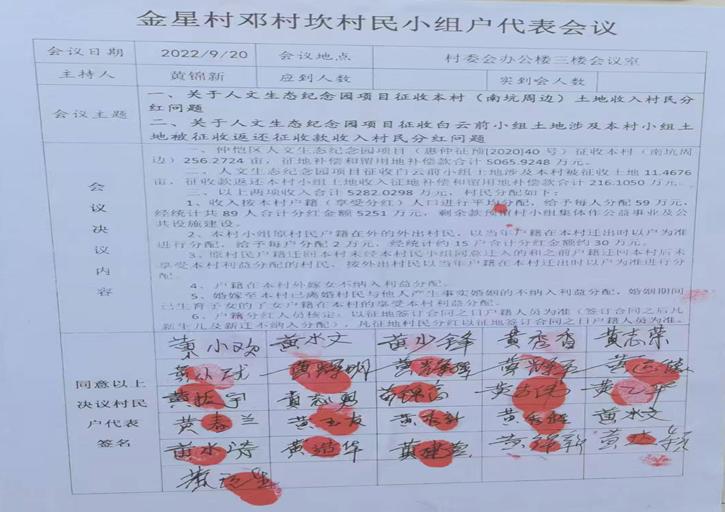 金星村邓村坎村民小组户代表会议
会议日期 2022/9/20 会议地点 村委会办公楼三楼会议室
主持人 黄锦新 应到人数 实到会人数
会议主题
一、关于人文生态纪念园项目征收本村（南坑周边）土地收入村民分
红问题
二、关于人文生态纪念园项目征收白云前小组土地涉及本村小组土
地被征收返还征收款收入村民分红问题
会议决议内容
一、仲恺区人文生态纪念园项目（惠仲征预[2020]40号）征收本村（南坑周
边）256.2724亩，征地补偿和留用地补偿款合计5065.9248万元。
二、人文生态纪念园项目征收白云前小组土地涉及本村被征收土地11.4676
亩，征收款返还本村小组土地收入征地补偿和留用地补偿款合计216.1050万元。
三、以上两项收入合计5282.0298万元，村民分配如下：
1、收入按本村户籍（享受分红）人口进行平均分配，给予每人分配59万元，
经统计共89人合计分红金额5251万元，剩余款预留村小组集体作公益事业及公
共设施建设。
2、本村小组原村民户籍在外的外出村民，以当年户籍在本村迁出时以户为准
进行分配，给予每户分配2万元，经统计约15户合计分红金额约30万元。
3、原村民户籍迁回本村未经本村民小组同意迁入的和之前户籍迁回本村后未
享受本村利益分配的村民，按外出村民以当年户籍在本村迁出时以户为准进行分
配。
4、户籍在本村外嫁女不纳入利益分配。
5、婚嫁至本村已离婚村民与他人产生事实婚姻的不纳入利益分配，婚姻期间
已生育子女的子女户籍在本村的享受本村利益分配。
6、户籍分红人员核定：以征地签订合同之日户籍人员为准（签订合同之后儿
新生儿及新迁不纳入分配），凡征地村民分红以征地签订合同之日户籍人员为准。
同意以上
决议村民
户代表
签名
黄小欢 黄水文 黄少锋 黄志荣
黄春兰 黄水文
黄锦新